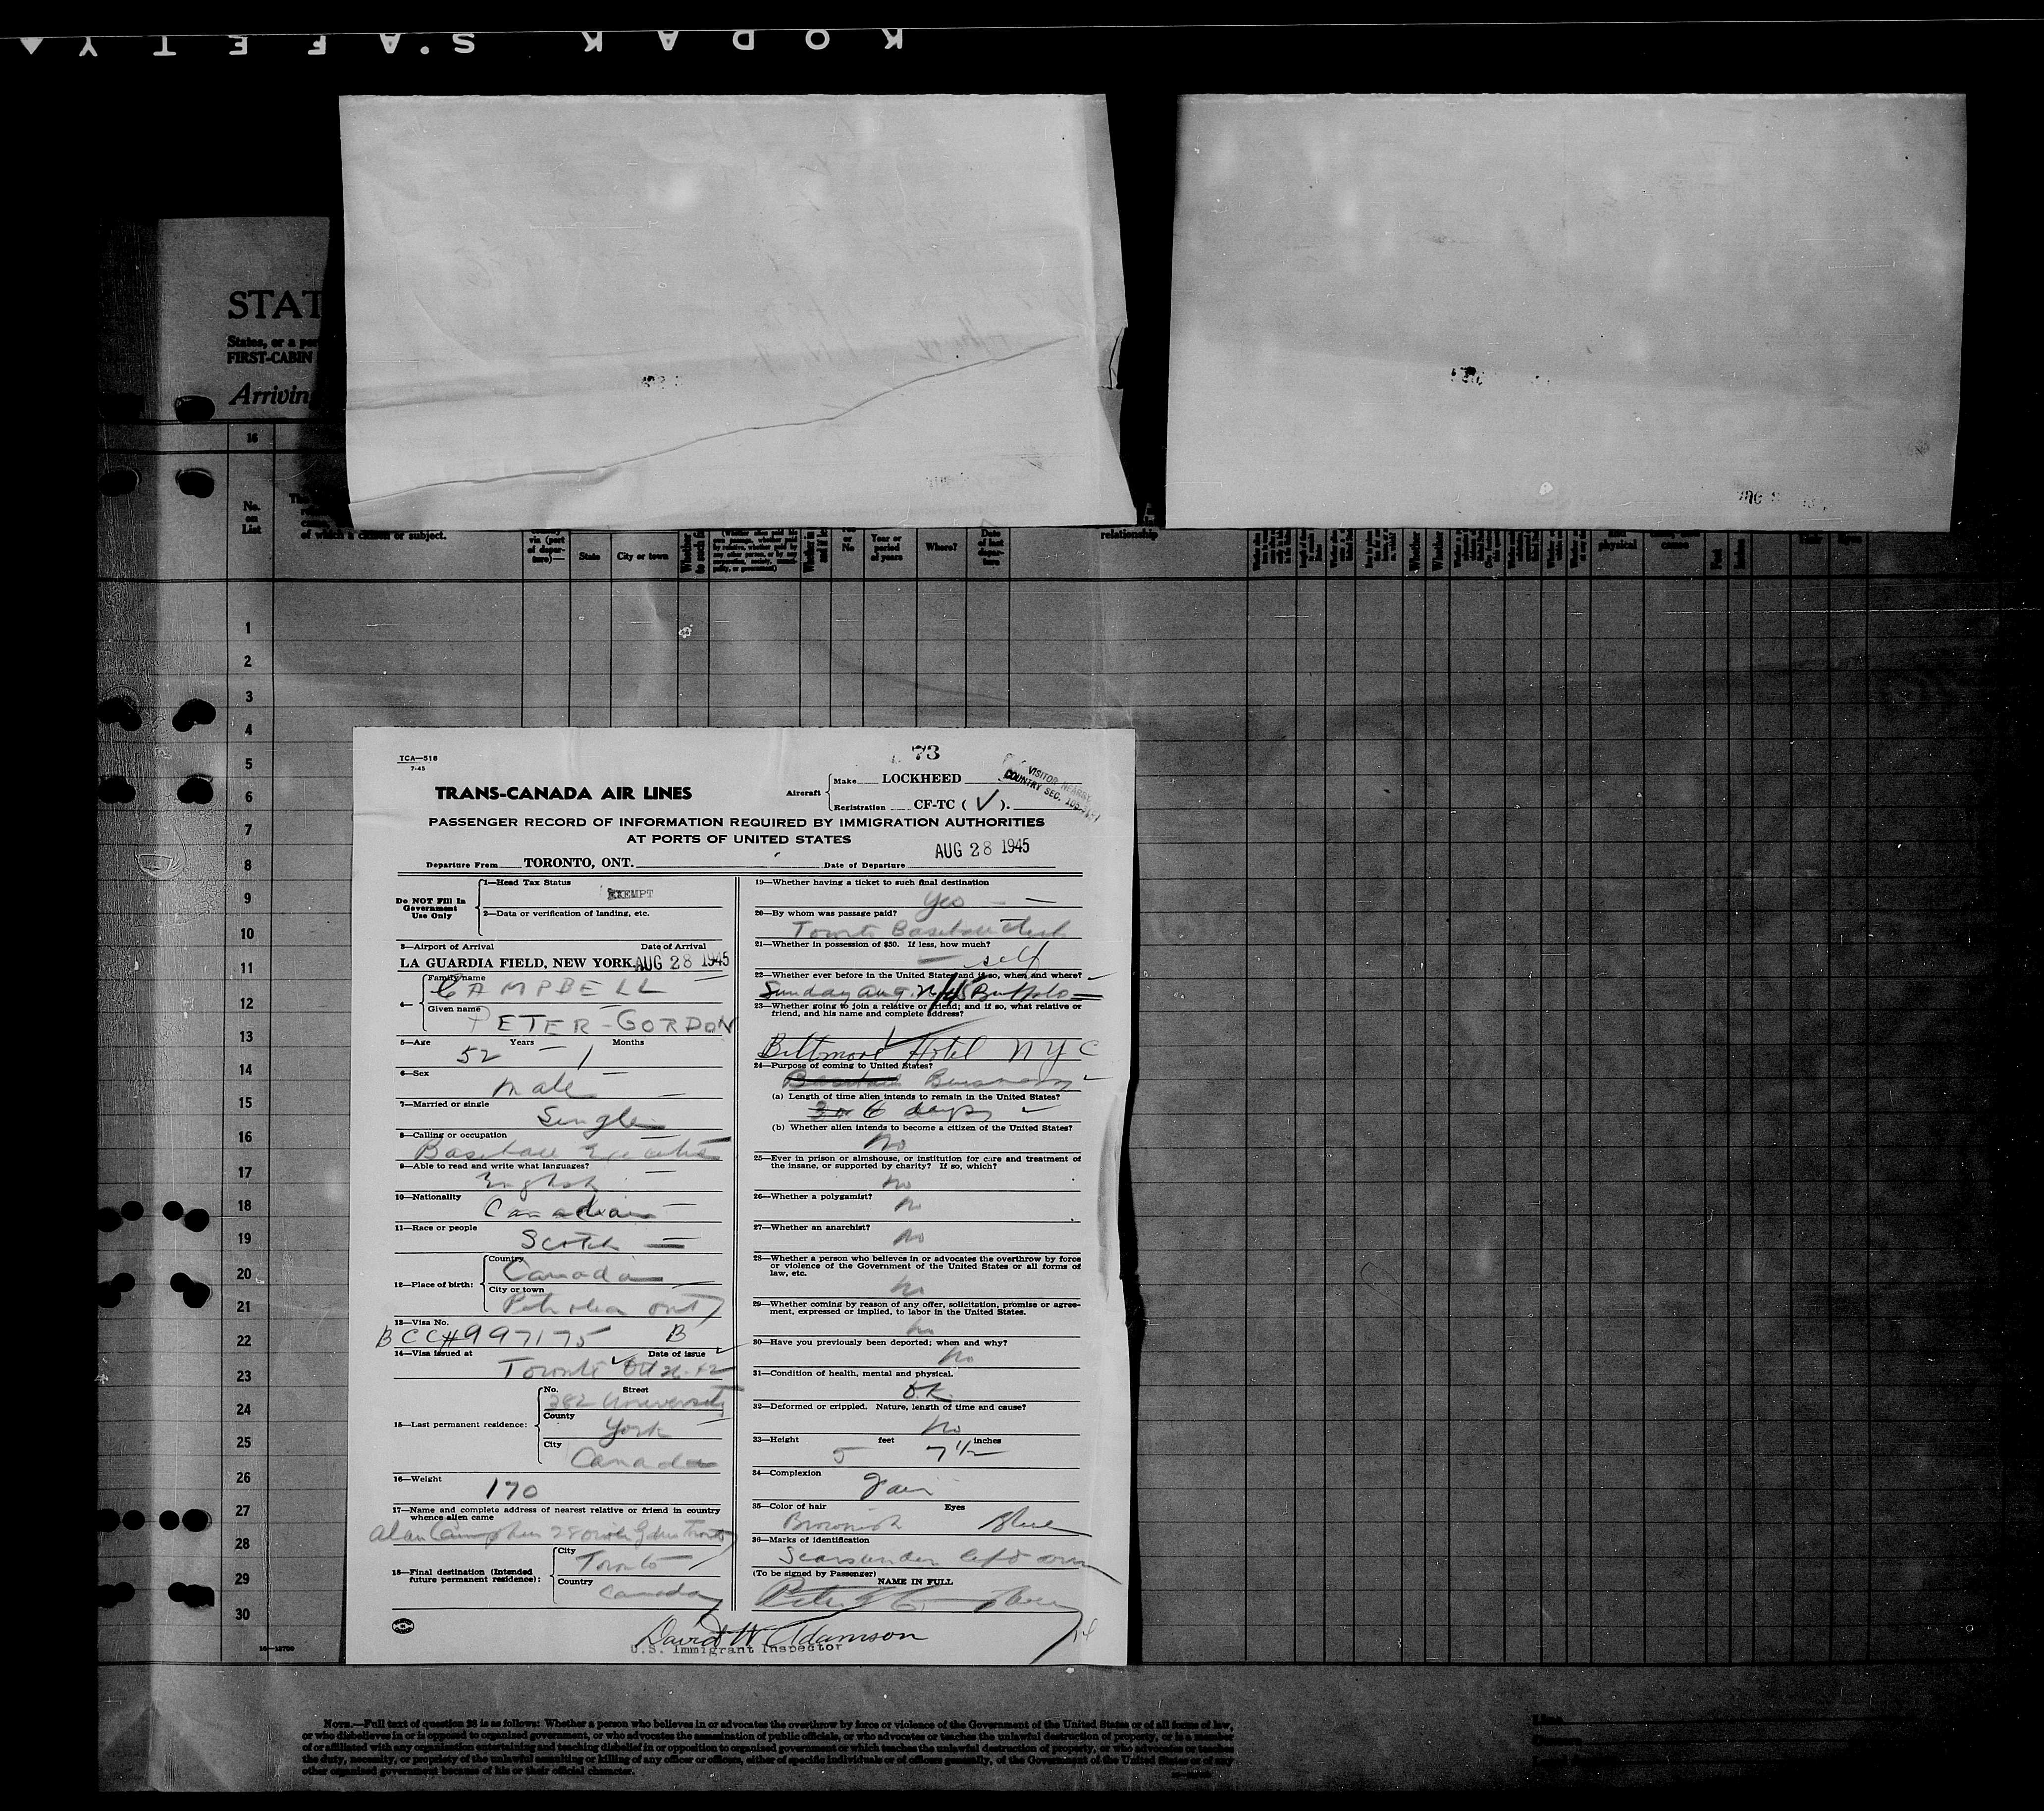 KODAK S'AFETY
STAT
States, or a per
FIRST-CABIN
Arrivin
16
No.
on
List
of which a citizen or subject.
via (port
of depar-
ture)—
State
City or town
or
No
Year or
period
of years
Where?
Date
of last
depar-
ture
relationship
physical
cause
Feet
Inches
1
2
3
4
5
6
7
8
9
10
11
12
13
14
15
16
17
18
19
20
21
22
23
24
25
26
27
28
29
30
TCA—518
7-45
73
TRANS-CANADA AIR LINES
Aircraft
Make LOCKHEED
Registration CF-TC (V).
VISITOR NEARBY
COUNTRY SEC.
PASSENGER RECORD OF INFORMATION REQUIRED BY IMMIGRATION AUTHORITIES
AT PORTS OF UNITED STATES
Departure From TORONTO, ONT. Date of Departure AUG 28 1945
Do NOT Fill In
Government
Use Only
1—Head Tax Status
EXEMPT
2—Data or verification of landing, etc.
3—Airport of Arrival Date of Arrival
LA GUARDIA FIELD, NEW YORK AUG 28 1945
4—
Family name
CAMPBELL
Given name
PETER-GORDON
5—Age Years Months
52 – 1
6—Sex
Male
7—Married or single
Single
8—Calling or occupation
Baseball Executive
9—Able to read and write what languages?
English
10—Nationality
Canadian
11—Race or people
Scotch
12—Place of birth:
Country
Canada
City or town
Petrolia Ont
13—Visa No.
BCC#997175 B
14—Visa issued at Date of issue
Toronto Oct 26-42
15—Last permanent residence:
No. Street
382 University
County
York
City
Canada
16—Weight
170
17—Name and complete address of nearest relative or friend in country
whence alien came
Alan Campbell 28
18—Final destination (Intended
future permanent residence):
City
Toronto
Country
Canada
19—Whether having a ticket to such final destination
Yes
20—By whom was passage paid?
Toronto Baseball Club
21—Whether in possession of $50. If less, how much?
self
22—Whether ever before in the United States and if so, when and where?
Sunday Aug. 26/45 Buffalo
23—Whether going to join a relative or friend; and if so, what relative or
friend, and his name and complete address?
Biltmore Hotel NYC
24—Purpose of coming to United States?
Baseball Business
(a) Length of time alien intends to remain in the United States?
6 days
(b) Whether alien intends to become a citizen of the United States?
No
25—Ever in prison or almshouse, or institution for care and treatment of
the insane, or supported by charity? If so, which?
No
26—Whether a polygamist?
No
27—Whether an anarchist?
No
28—Whether a person who believes in or advocates the overthrow by force
or violence of the Government of the United States or all forms of
law, etc.
No
29—Whether coming by reason of any offer, solicitation, promise or agree-
ment, expressed or implied, to labor in the United States.
No
30—Have you previously been deported; when and why?
No
31—Condition of health, mental and physical.
O.K.
32—Deformed or crippled. Nature, length of time and cause?
No
33—Height feet inches
5 7 1/2
34—Complexion
Fair
35—Color of hair Eyes
Brownish Blue
36—Marks of identification
Scars under left arm
(To be signed by Passenger)
NAME IN FULL
Peter G
David W Adamson
U.S. Immigrant Inspector
NOTE.—Full text of question 28 is as follows: Whether a person who believes in or advocates the overthrow by force or violence of the Government of the United States or of all forms of law,
or who disbelieves in or is opposed to organized government, or who advocates the assassination of public officials, or who advocates or teaches the unlawful destruction of property, or is a member
of or affiliated with any organization entertaining and teaching disbelief in or opposition to organized government or which teaches the unlawful destruction of property, or who advocates or teaches
the duty, necessity, or propriety of the unlawful assaulting or killing of any officer or officers, either of specific individuals or of officers generally, of the Government of the United States or of any
other organized government because of his or their official character.